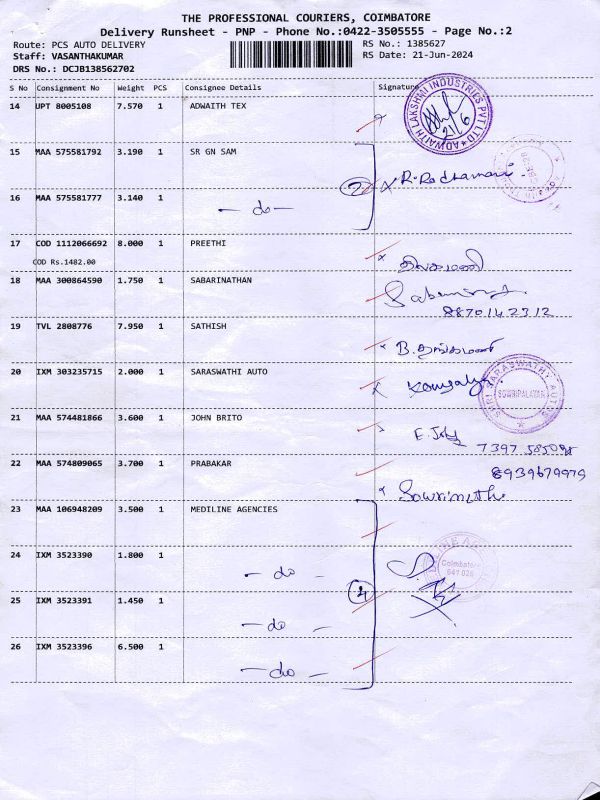 THE PROFESSIONAL COURIERS, COIMBATORE
Delivery Runsheet - PNP - Phone No.:0422-3505555 - Page No.:2
Route: PCS AUTO DELIVERY RS No.: 1385627
Staff: VASANTHAKUMAR RS Date: 21-Jun-2024
DRS No.: DCJB138562702
S No Consignment No Weight PCS Consignee Details Signature
14 UPT 8005108 7.570 1 ADWAITH TEX
ADWAITH LAKSHMI INDUSTRIES PVT LTD
21/6
15 MAA 575581792 3.190 1 SR GN SAM
2 R. Radhamani
16 MAA 575581777 3.140 1 - do -
17 COD 1112066692 8.000 1 PREETHI
COD Rs.1482.00
18 MAA 300864590 1.750 1 SABARINATHAN
8870142312
19 TVL 2808776 7.950 1 SATHISH
20 IXM 303235715 2.000 1 SARASWATHI AUTO
SHRI SARASWATHY AUTOS
SOWRIPALAYAM
21 MAA 574481866 3.600 1 JOHN BRITO
22 MAA 574809065 3.700 1 PRABAKAR
8939679979
23 MAA 106948209 3.500 1 MEDILINE AGENCIES
24 IXM 3523390 1.800 1 - do -
Coimbatore
641 028
25 IXM 3523391 1.450 1 - do -
4
26 IXM 3523396 6.500 1 - do -